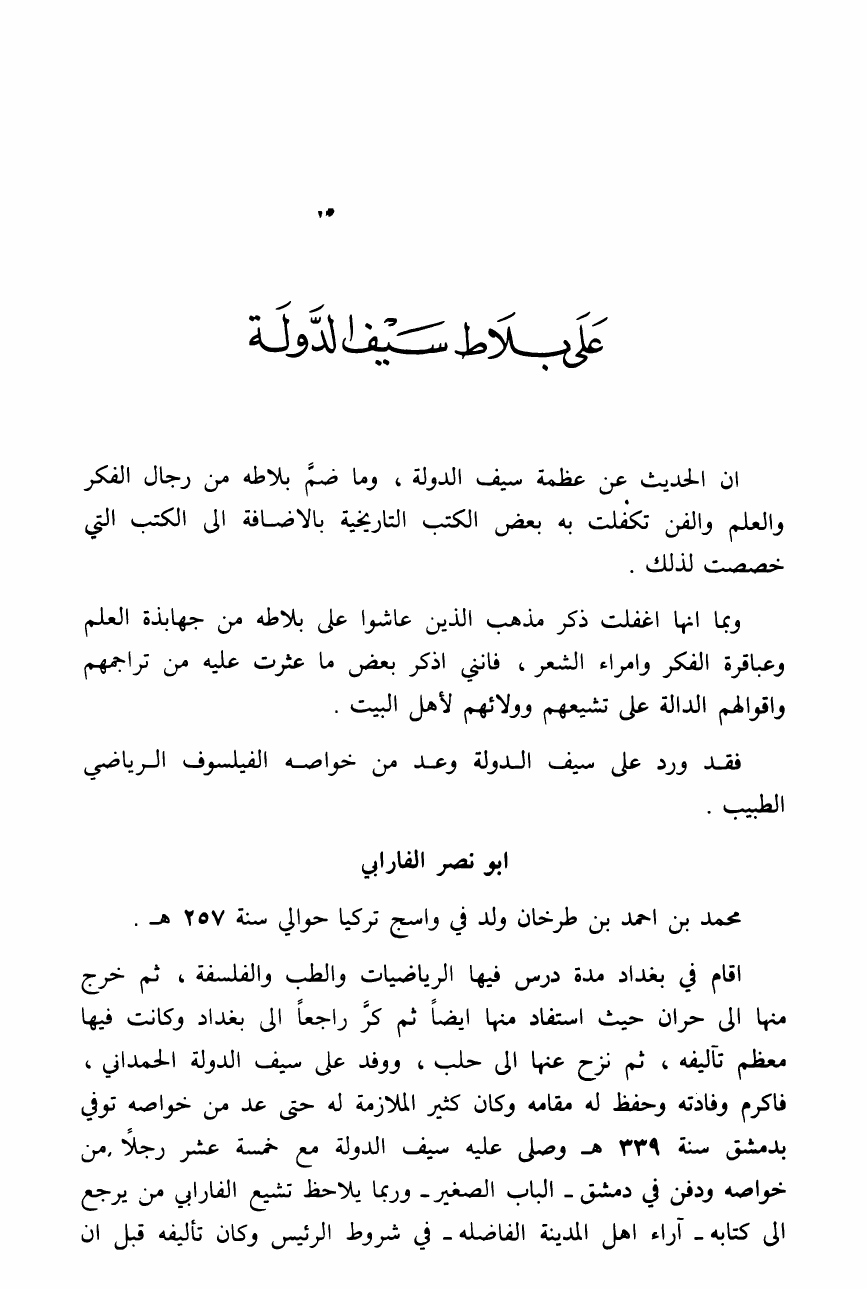 عَلَى بِلَاط سَيْف الدَّولَة
ان الحديث عن عظمة سيف الدولة ، وما ضمَّ بلاطه من رجال الفكر
والعلم والفن تكفلت به بعض الكتب التاريخية بالاضافة الى الكتب التي
خصصت لذلك .
وبما انها اغفلت ذكر مذهب الذين عاشوا على بلاطه من جهابذة العلم
وعباقرة الفكر وامراء الشعر ، فانني اذكر بعض ما عثرت عليه من تراجمهم
واقوالهم الدالة على تشيعهم وولائهم لأهل البيت .
فقد ورد على سيف الدولة وعد من خواصه الفيلسوف الرياضي
الطبيب .
ابو نصر الفارابي
محمد بن احمد بن طرخان ولد في واسج تركيا حوالي سنة ٢٥٧ هـ .
اقام في بغداد مدة درس فيها الرياضيات والطب والفلسفة ، ثم خرج
منها الى حران حيث استفاد منها ايضاً ثم كرَّ راجعاً الى بغداد وكانت فيها
معظم تآليفه ، ثم نزح عنها الى حلب ، ووفد على سيف الدولة الحمداني ،
فاكرم وفادته وحفظ له مقامه وكان كثير الملازمة له حتى عد من خواصه توفي
بدمشق سنة ٣٣٩ هـ وصلى عليه سيف الدولة مع خمسة عشر رجلاً من
خواصه ودفن في دمشق - الباب الصغير - وربما يلاحظ تشيع الفارابي من يرجع
الى كتابه - آراء اهل المدينة الفاضله - في شروط الرئيس وكان تأليفه قبل ان